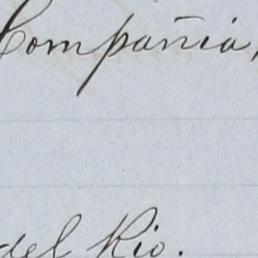 Compañia,
del Rio.